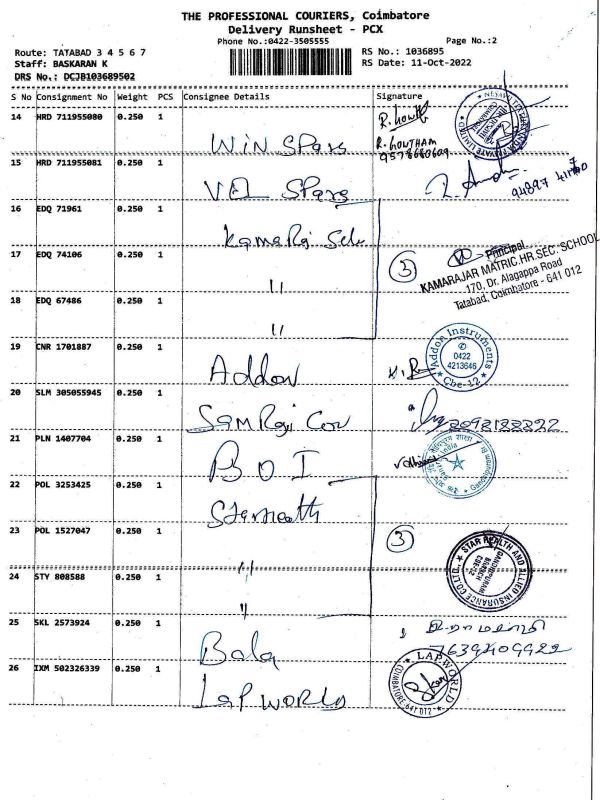 THE PROFESSIONAL COURIERS, Coimbatore
Delivery Runsheet - PCX
Phone No.:0422-3505555
Page No.:2
Route: TATABAD 3 4 5 6 7
RS No.: 1036895
Staff: BASKARAN K
RS Date: 11-Oct-2022
DRS No.: DCJB103689502
S No Consignment No Weight PCS Consignee Details Signature
14 HRD 711955080 0.250 1 WIN SPars
R. GOUTHAM
9578680609
15 HRD 711955081 0.250 1 VEL SPars
94897
16 EDQ 71961 0.250 1 Kamaraj
17 EDQ 74106 0.250 1 " 3
Principal
KAMARAJAR MATRIC.HR.SEC. SCHOOL
170, Dr. Alagappa Road
Tatabad, Coimbatore - 641 012
18 EDQ 67486 0.250 1 "
19 CNR 1701887 0.250 1 Addon
Addon Instruments
0422
4213646
Cbe-12
20 SLM 305055945 0.250 1
21 PLN 1407704 0.250 1 BOI
22 POL 3253425 0.250 1
23 POL 1527047 0.250 1 " 3
STAR HEALTH AND ALLIED INSURANCE CO.LTD.,
GANDHIPURAM
BRANCH
CBE-12
24 STY 808588 0.250 1 "
25 SKL 2573924 0.250 1 Bala
26 IXM 502326339 0.250 1 LAP WORLD
LAP WORLD
COIMBATORE 641 012